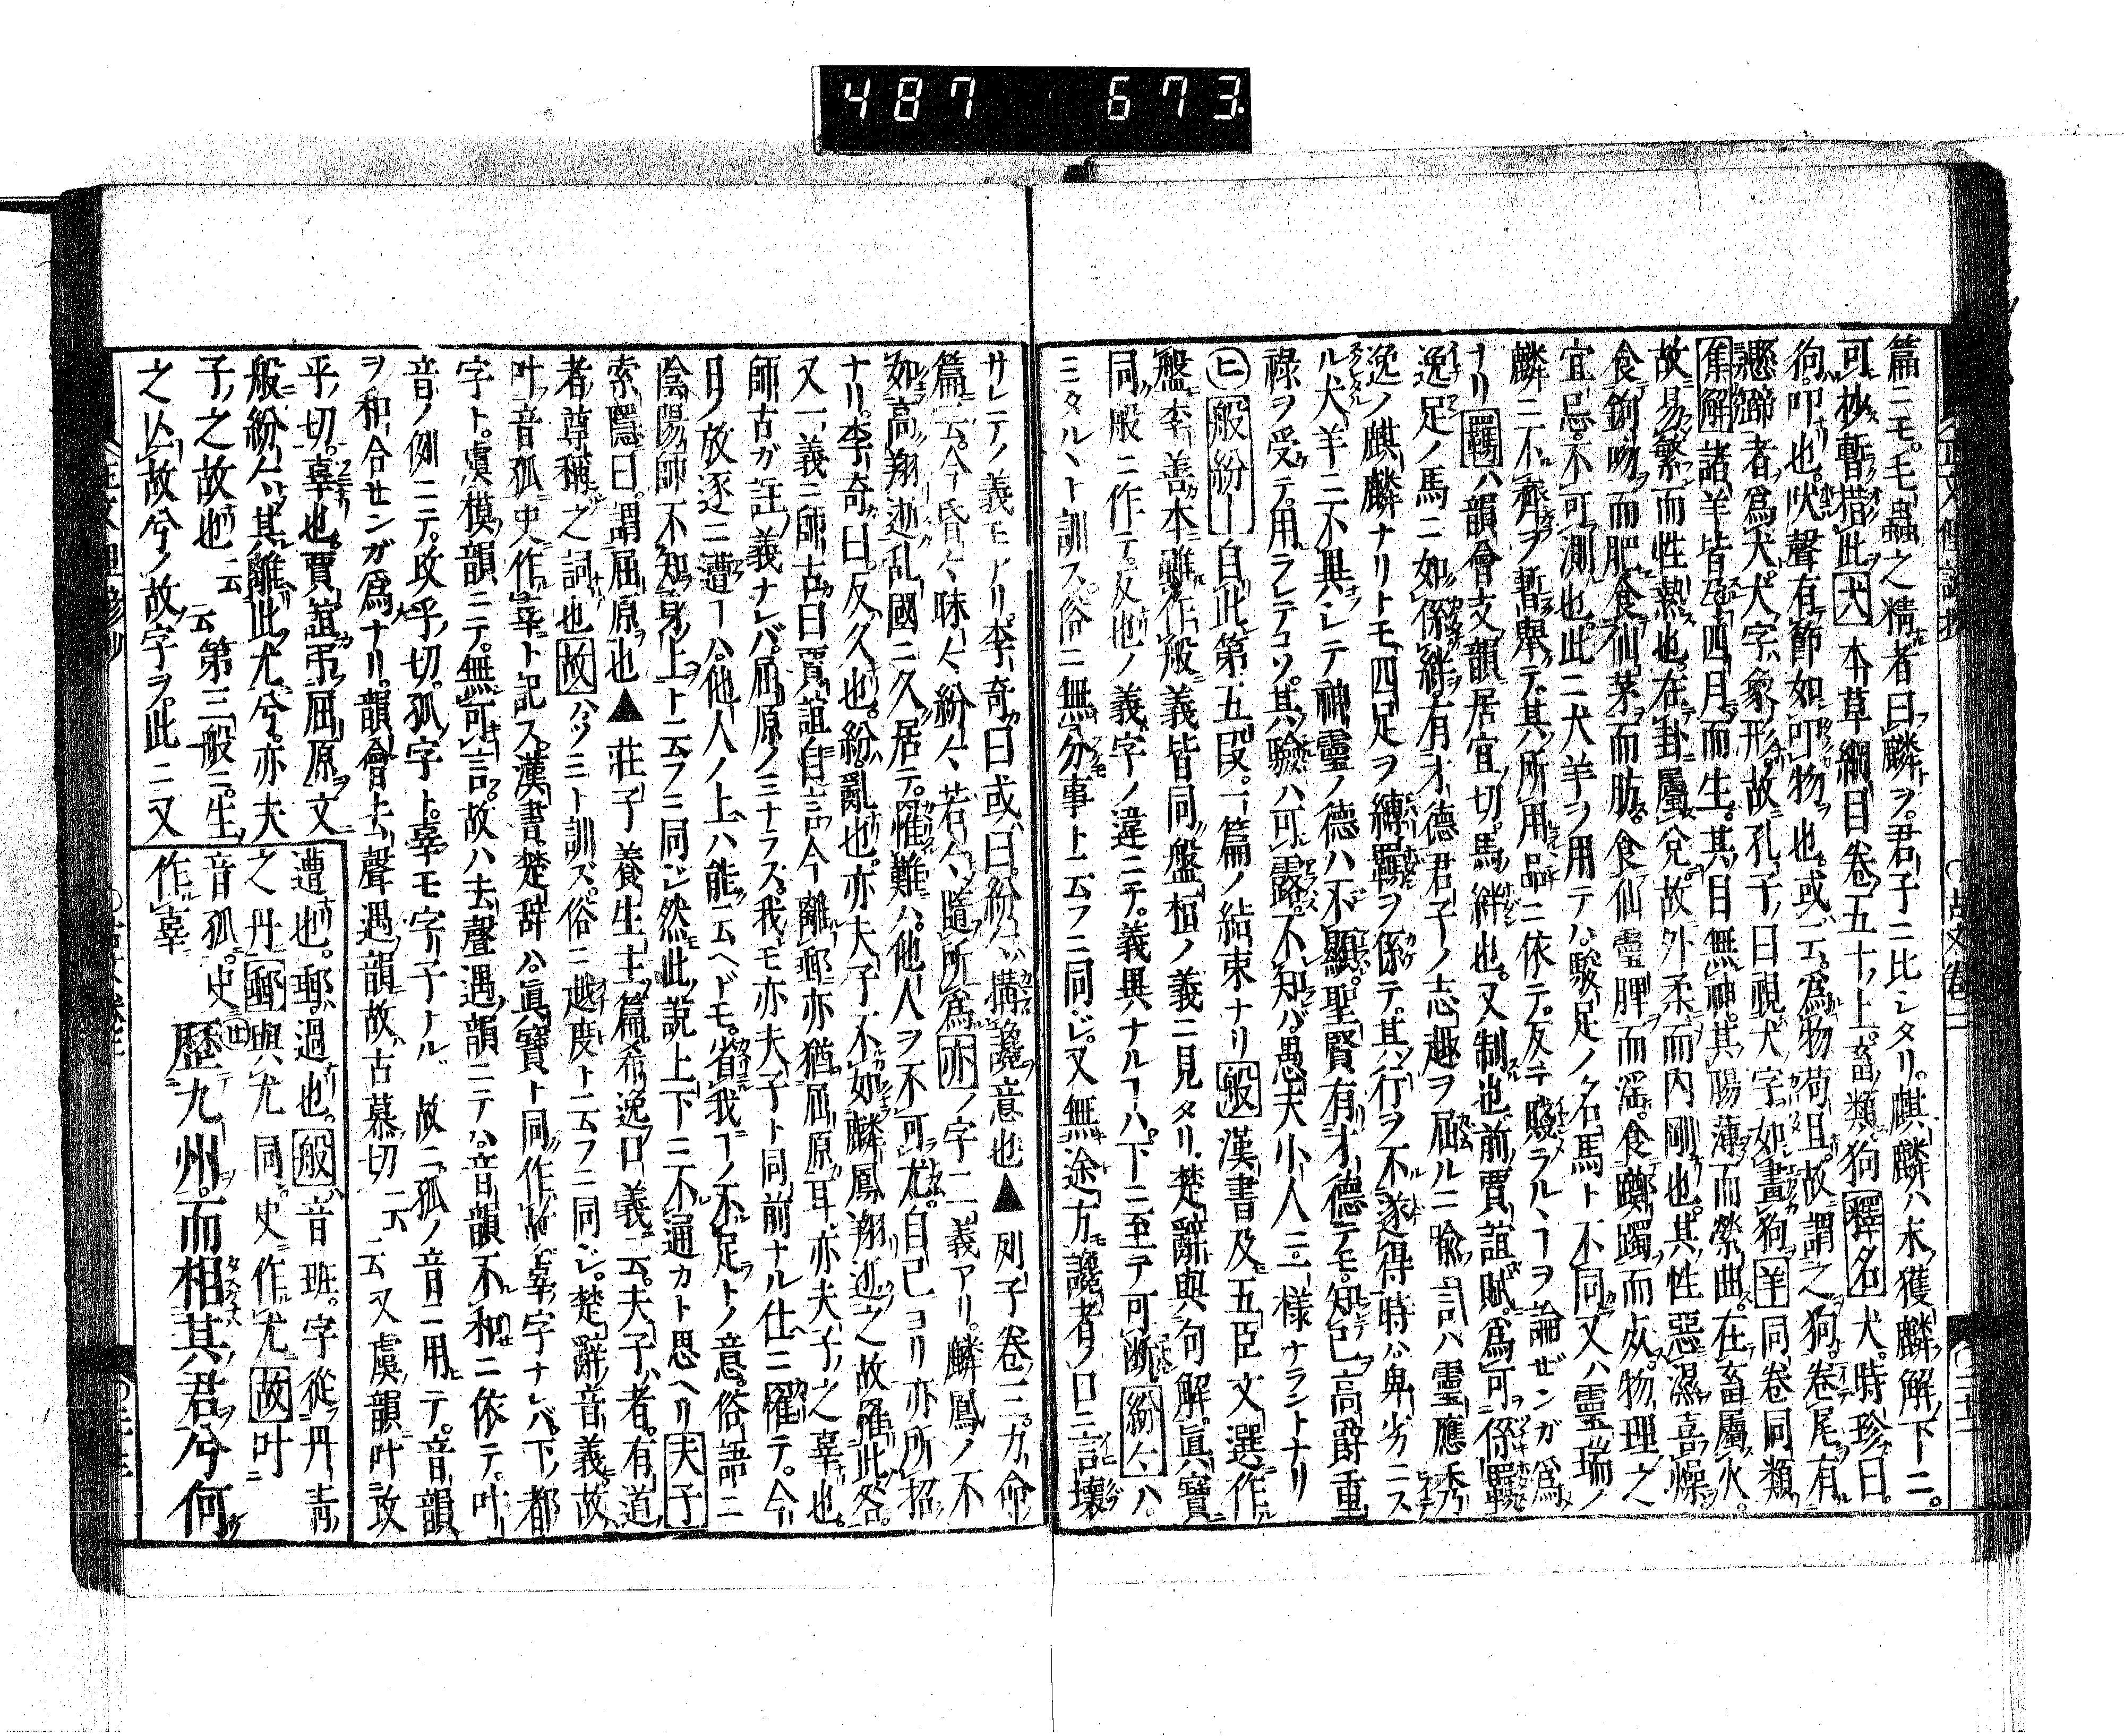 487 673
篇ニモ。毛蟲之精者曰麟ヲ。君子ニ比シタリ。麒麟ハ末ノ獲麟解ノ下ニ。
可抄暫措此犬本草綱目卷五十ノ上。畜類狗釋名犬。時珍曰。
狗。叩也。吠聲有節如叩物也。或云。爲物苟且。故謂之狗。卷尾有
懸蹄者爲犬。犬字象形。故孔子曰視犬字如畫狗羊同卷同類
集解諸羊皆孕四月而生。其目無神。其腸薄而縈曲。在畜屬火。
故易繁而性熱也。在卦屬兌故外柔而内剛也。其性惡濕喜燥
食鉤吻而肥食仙茅而肪。食仙靈脾而淫。食躑躅而死。物理之
宜忌。不可測也。此ニ犬羊ヲ用テハ。駿足ノ名馬ト不同又ハ靈瑞ノ
麟ニ不齊ヲ暫舉テ。其所用品ニ依テ。反テ賤ラルヽヿヲ論ゼンガ爲
ナリ羈ハ韻會支韻居宜切。馬絆也。又制也。前賈誼賦。爲可係羈
逸足ノ馬ニ如係絆有才德君子ノ志趣ヲ屈ルニ喩フ言ハ靈應秀
逸ノ麒麟ナリトモ四足ヲ縛羈ヲ係テ。其行ヲ不遂得時ハ卑劣ニス
ル犬羊ニ不異シテ神靈ノ德ハ不顯。聖賢有才德テモ。知己高爵重
祿ヲ受テ。用ラレテコソ。其驗ハ可露。不知バ愚夫小人ニ一樣ナラントナリ
㊁般紛ー自此第五段。一篇ノ結束ナリ般漢書及五臣文選作
盤李善本雖作般義皆同盤桓ノ義ニ見タリ。楚辭與句解眞寶
同般ニ作テ。反也ノ義字ノ違ニテ。義異ナルヿハ。下ニ至テ可斷紛々ハ
ミタルヽト訓ス。俗ニ無分事ト云フニ同ジ。又無途方讒者ノ口ニ言壞
サレテノ義モアリ。李奇曰或曰。紛々構讒意也▲列子卷三力命
篇云。今昏々昧々紛々若々隨所爲亦ノ字二義アリ。麟鳳ノ不
如高翔逝乱國ニ久居テ。罹難ハ。他人ヲ不可尤。自己ヨリ亦所招
ナリ。李奇曰。反久也。紛亂也。亦夫子不如麟鳳翔逝之故罹此咎
又一義ニ師古曰賈誼自言今離郵亦猶屈原耳亦夫子之辜也。
師古ガ註義ナレバ。屈原ノミナラズ。我モ亦夫子ト同前ナル仕ニ罹テ。今
日ノ放逐ニ遭ーハ。他人ノ上ハ能云ヘドモ。省我ヿノ不足トノ意。俗語ニ
陰陽師不知身上ト云フニ同ジ然モ此説上下ニ不通カト思ヘリ夫子
索隱曰。謂屈原也▲莊子養生主篇希逸口義云。夫子者。有道
者尊稱之詞也故ハツミト訓ズ。俗ニ越度ト云フニ同ジ。楚辭音義故
叶音孤史作辜ト記ス。漢書楚辞ハ。眞寶ト同作故辜字ナレバ。下都
字ト。虞模韻ニテ。無可言故ハ去聲遇韻ニテハ。音韻不和ニ依テ。叶
音ノ例ニテ。攻乎切。孤字ト。辜モ字子ナル故ニ孤ノ音ニ用テ。音韻
ヲ和合せンガ爲ナリ。韻會去聲遇韻故古慕切云云又虞韻叶攻
乎切。辜也。賈誼弔屈原文
般紛々其離此尤兮。亦夫
子之故也云云第三般ニ。生
之亾故兮ノ故字ヲ。此ニ又
遭也。郵。過也。般音班。字從丹青
之丹郵與尤同。史作尤故叶
音孤。史
作辜
歷九州。而相其君兮何